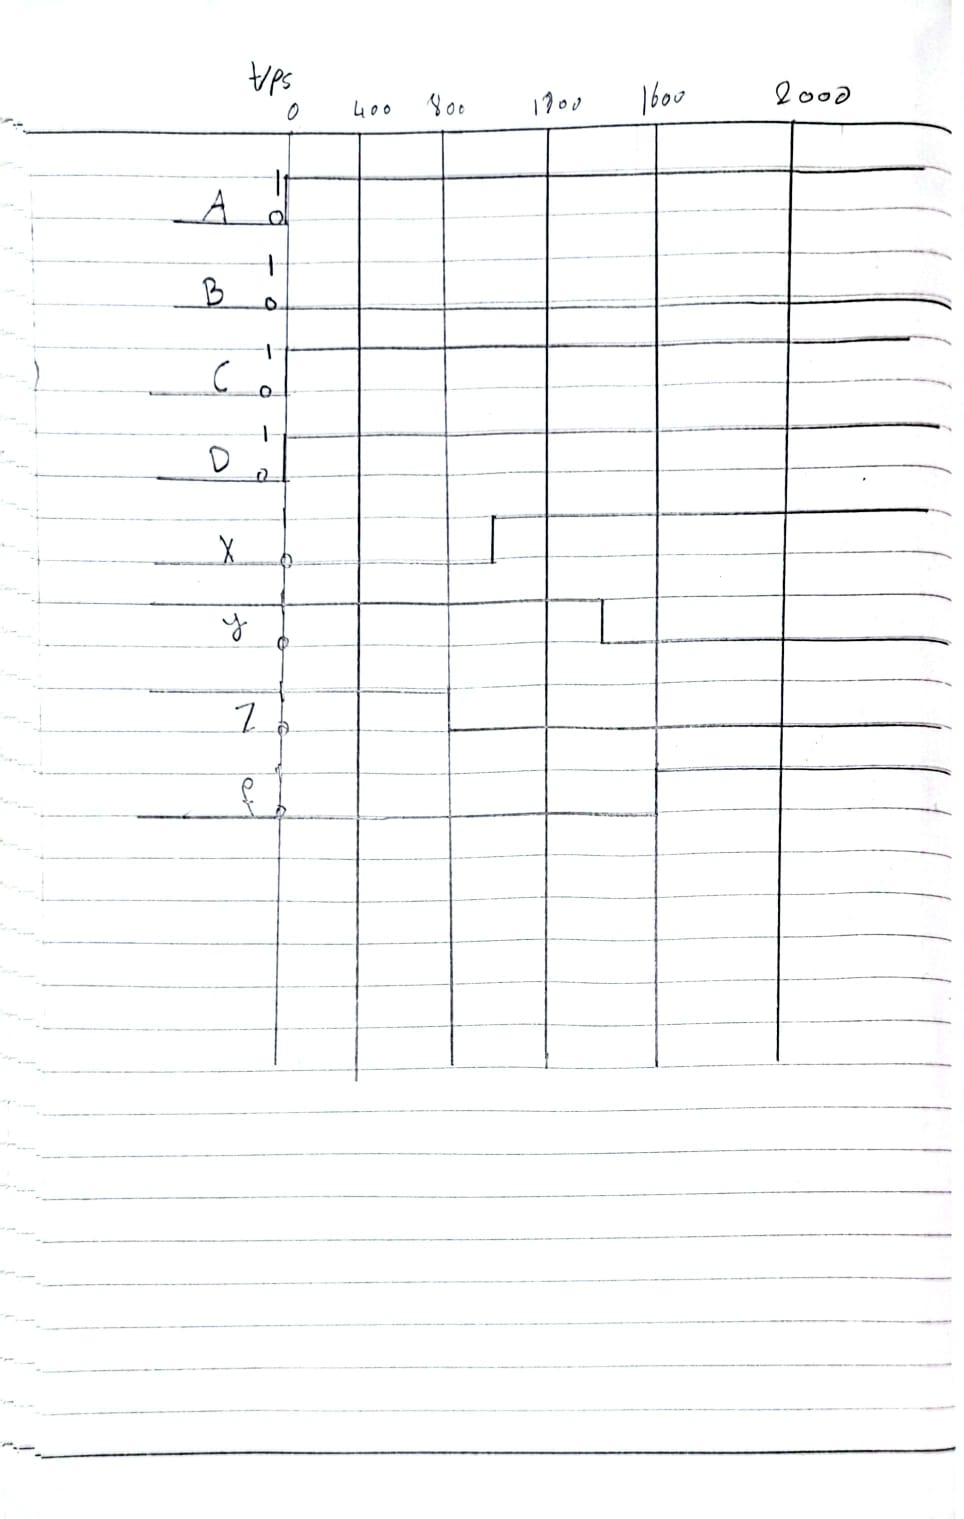 t/ps
0 400 800 1200 1600 2000
1
A 0
1
B 0
1
C 0
1
D 0
X 0
y 0
Z 0
f 0